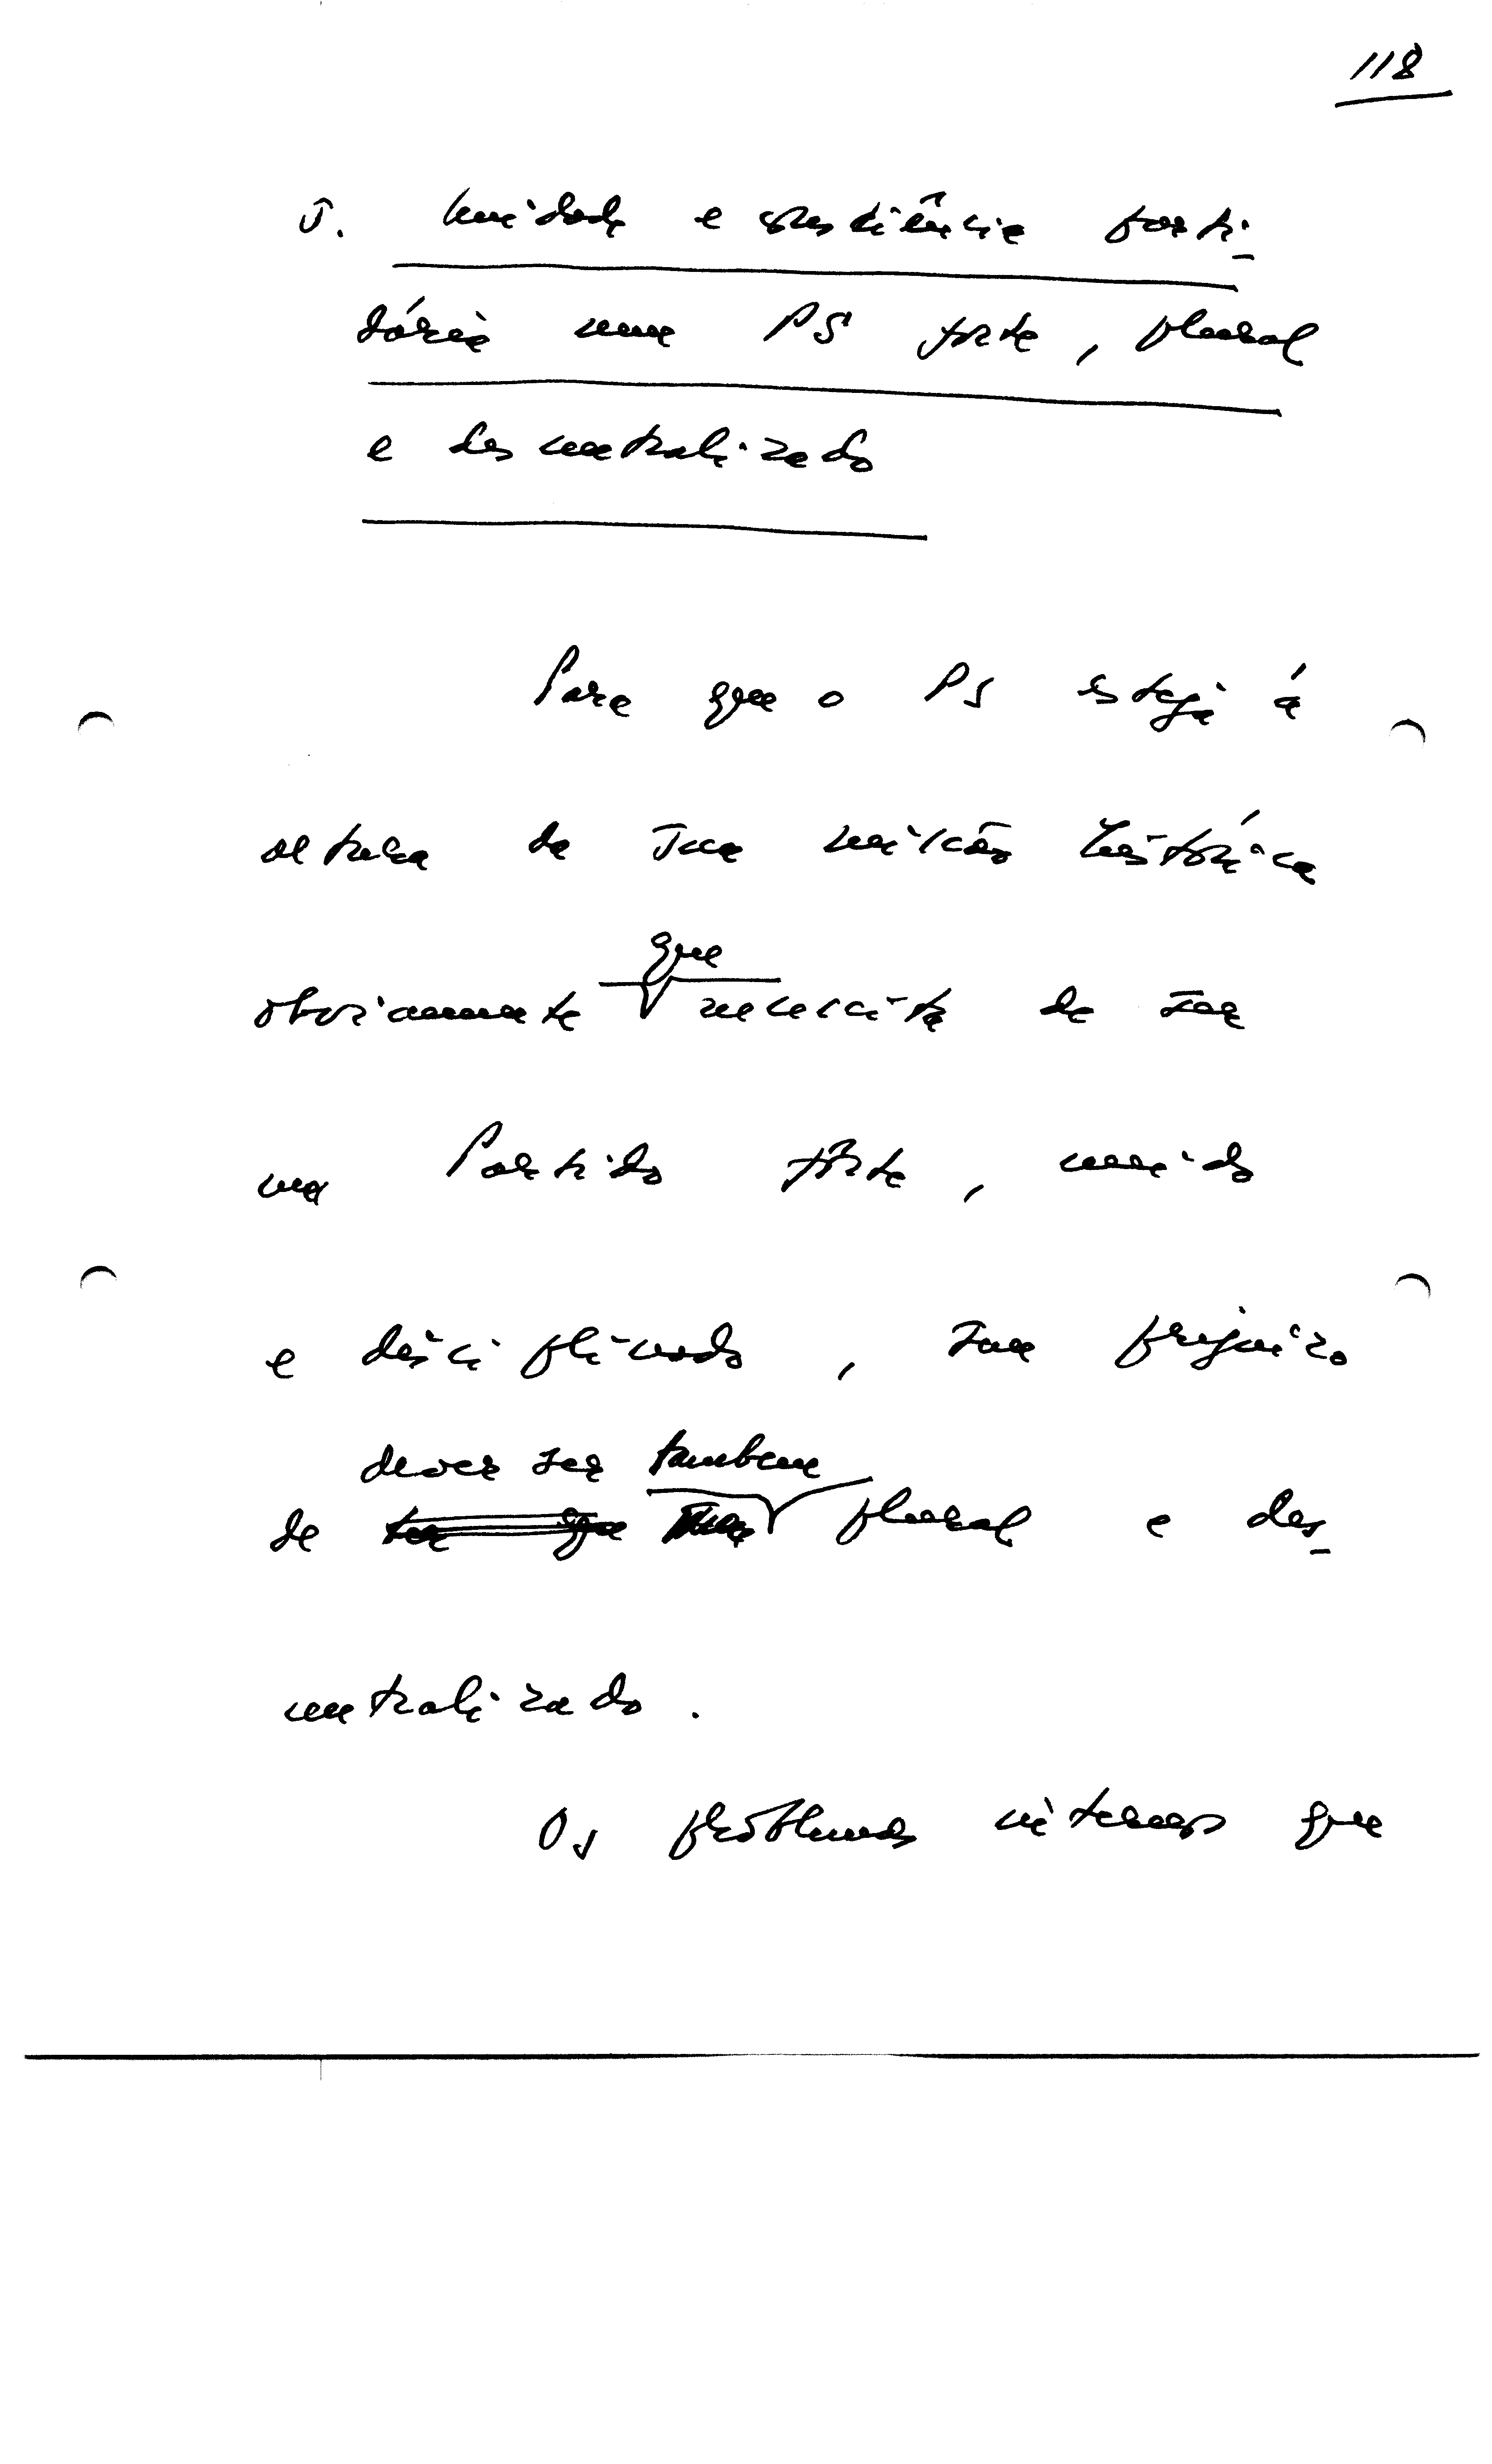 118
5. Unidade e consciência parti-
dária num PS forte, plural
e descentralizado
Para que o PS esteja á
altura da sua missão histórica
que
obviamente necessita de ser
um Partido forte, unido
e disciplinado, sem prejuizo
dever ser tambem
de ter que ser plural e des-
centralizado.
Os problemas internos que